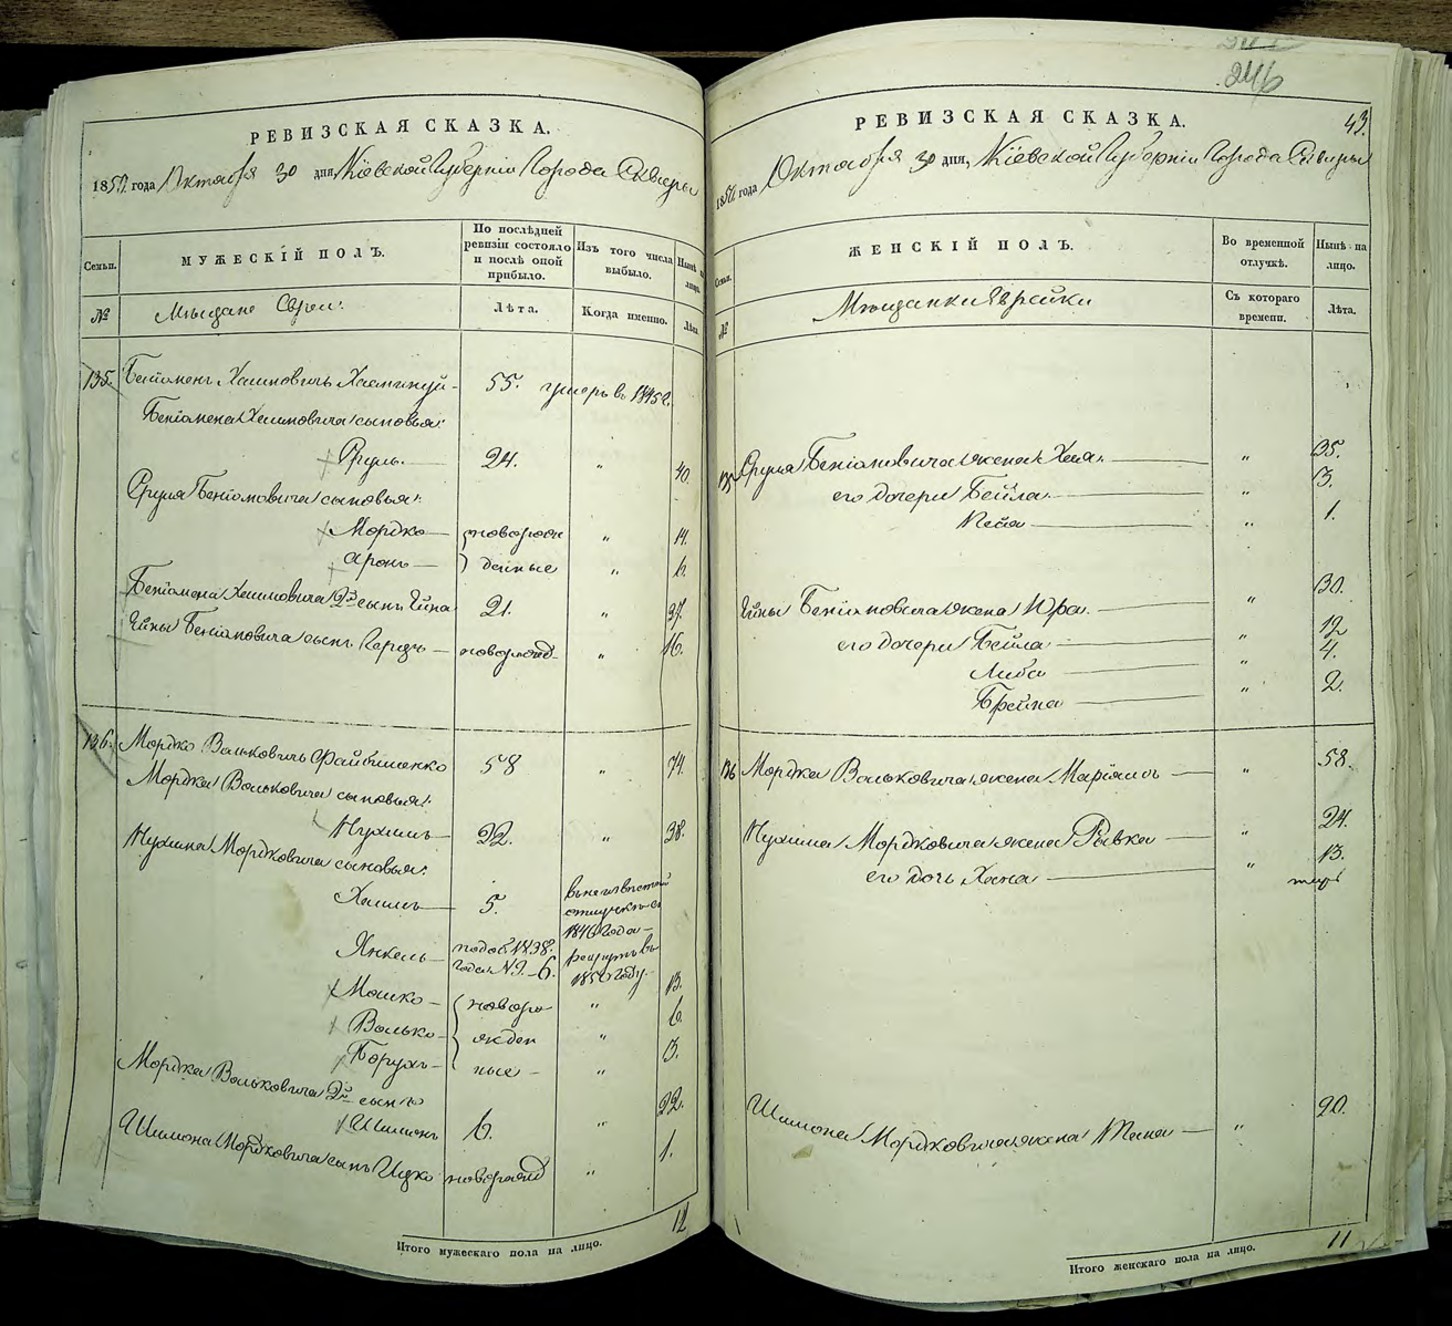 РЕВИЗСКАЯ СКАЗКА.
1850 года Октября 30 дня, Кіевской Губерніи Города Сквиры
Семьи.
МУЖЕСКІЙ ПОЛЪ.
По послѣдней ревизіи состояло и послѣ оной прибыло.
Изъ того числа выбыло.
Нынѣ на лицо.
№
Мѣщане Евреи:
Лѣта.
Когда именно.
Лѣта.
135. Беніоменъ Хаимовичъ 55. умеръ въ 1845 г.
Беніомена Хаимовича сыновья:
Сруль 24. „ 40.
Сруля Беніомовича сыновья:
Мордко новорож „ 14.
Аронъ денные „ 6.
Беніомена Хаимовича 2й сынъ 21. „ 37.
Беніомовича сынъ новорожд „ 16.
136. Мордко Вольковичъ Файбишенко 58 „ 74.
Мордка Вольковича сыновья:
Нухимъ 22. „ 38.
Нухима Мордковича сыновья:
Хаимъ 5. въ неизвѣстной отлучкѣ съ 1846 года
Янкель 1838. года № 9. 6. рекрутъ въ 1850 году.
Мошко новоро „ 13.
Волько жден „ 6.
Борухъ ные „ 3.
Мордка Вольковича 2й сынъ
Шимонъ 6. „ 22.
Шимона Мордковича сынъ Ицко новорожд „ 1.
12
Итого мужескаго пола на лицо.
246
43.
РЕВИЗСКАЯ СКАЗКА.
1850 года Октября 30 дня, Кіевской Губерніи Города Сквиры
Семьи.
ЖЕНСКІЙ ПОЛЪ.
Во временной отлучкѣ.
Нынѣ на лицо.
№
Мѣщанки Еврейки
Съ котораго времени.
Лѣта.
135 Сруля Беніомовича жена Хая „ 35.
его дочери Бейла „ 3.
„ 1.
Беніомовича жена „ 30.
его дочери Бейла „ 12
Либа „ 4.
Брейна „ 2.
136 Мордка Вольковича жена Маріамъ „ 58.
Нухима Мордковича жена Рывка „ 24.
его дочь Хана „ 13.
Шимона Мордковича жена „ 20.
11
Итого женскаго пола на лицо.